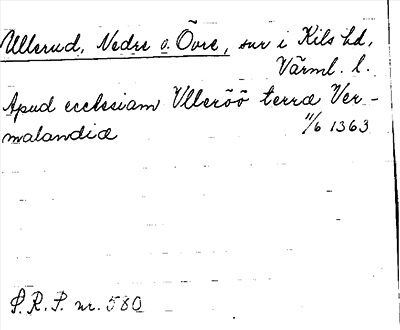 Ullerud, Nedre o. Övre, sn i Kils hd,
Värml. l.
Apud ecclesiam Vlleröö terræ Ver-
malandiæ 11/6 1363
S.R.P. nr. 580